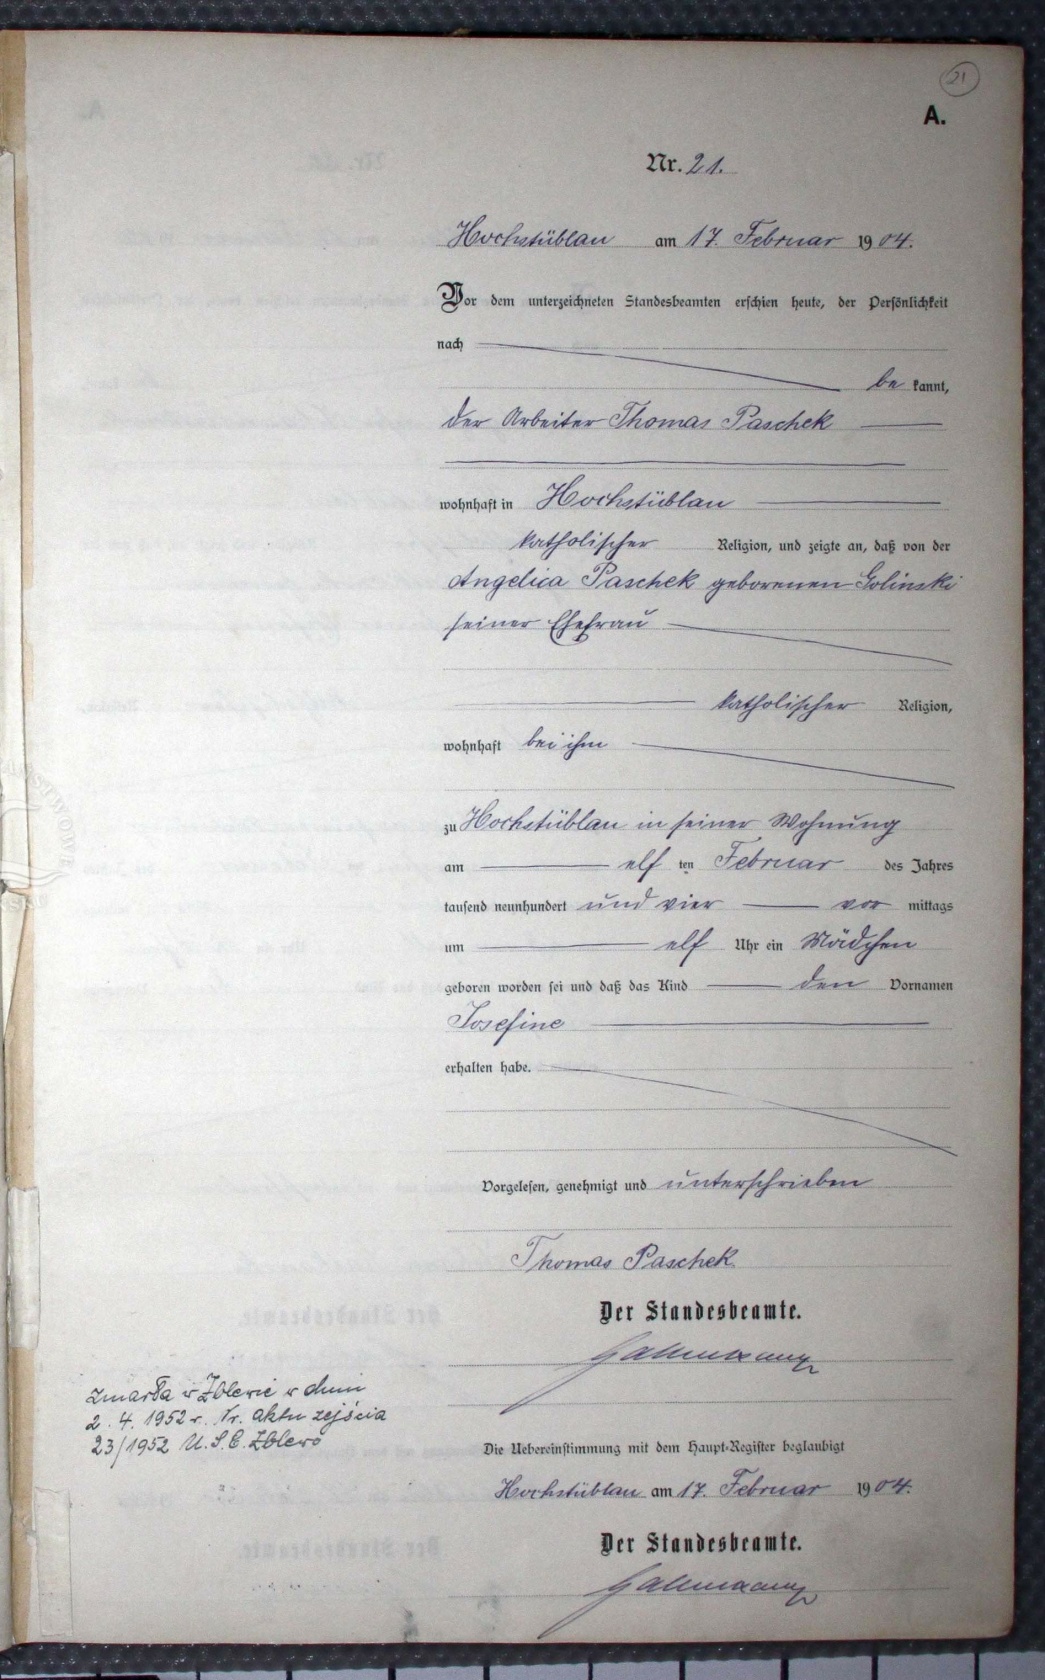 21
A.
Nr. 21.
Hochstüblau am 17. Februar 1904.
Vor dem unterzeichneten Standesbeamten erschien heute, der Persönlichkeit
nach
be kannt,
der Arbeiter Thomas Paschek
wohnhaft in Hochstüblau
katholischer Religion, und zeigte an, daß von der
Angelica Paschek geborenen Golinski
seiner Ehefrau
katholischer Religion,
wohnhaft bei ihm
zu Hochstüblau in seiner Wohnung
am elf ten Februar des Jahres
tausend neunhundert und vier vor mittags
um elf Uhr ein Mädchen
geboren worden sei und daß das Kind den Vornamen
Josefine
erhalten habe.
Vorgelesen, genehmigt und unterschrieben
Thomas Paschek
Der Standesbeamte.
zmarła w Zblewie w dniu
2. 4. 1952 r. Nr. aktu zejścia
23/1952 U.S.C. Zblewo
Die Uebereinstimmung mit dem Haupt-Register beglaubigt
Hochstüblau am 17. Februar 1904.
Der Standesbeamte.